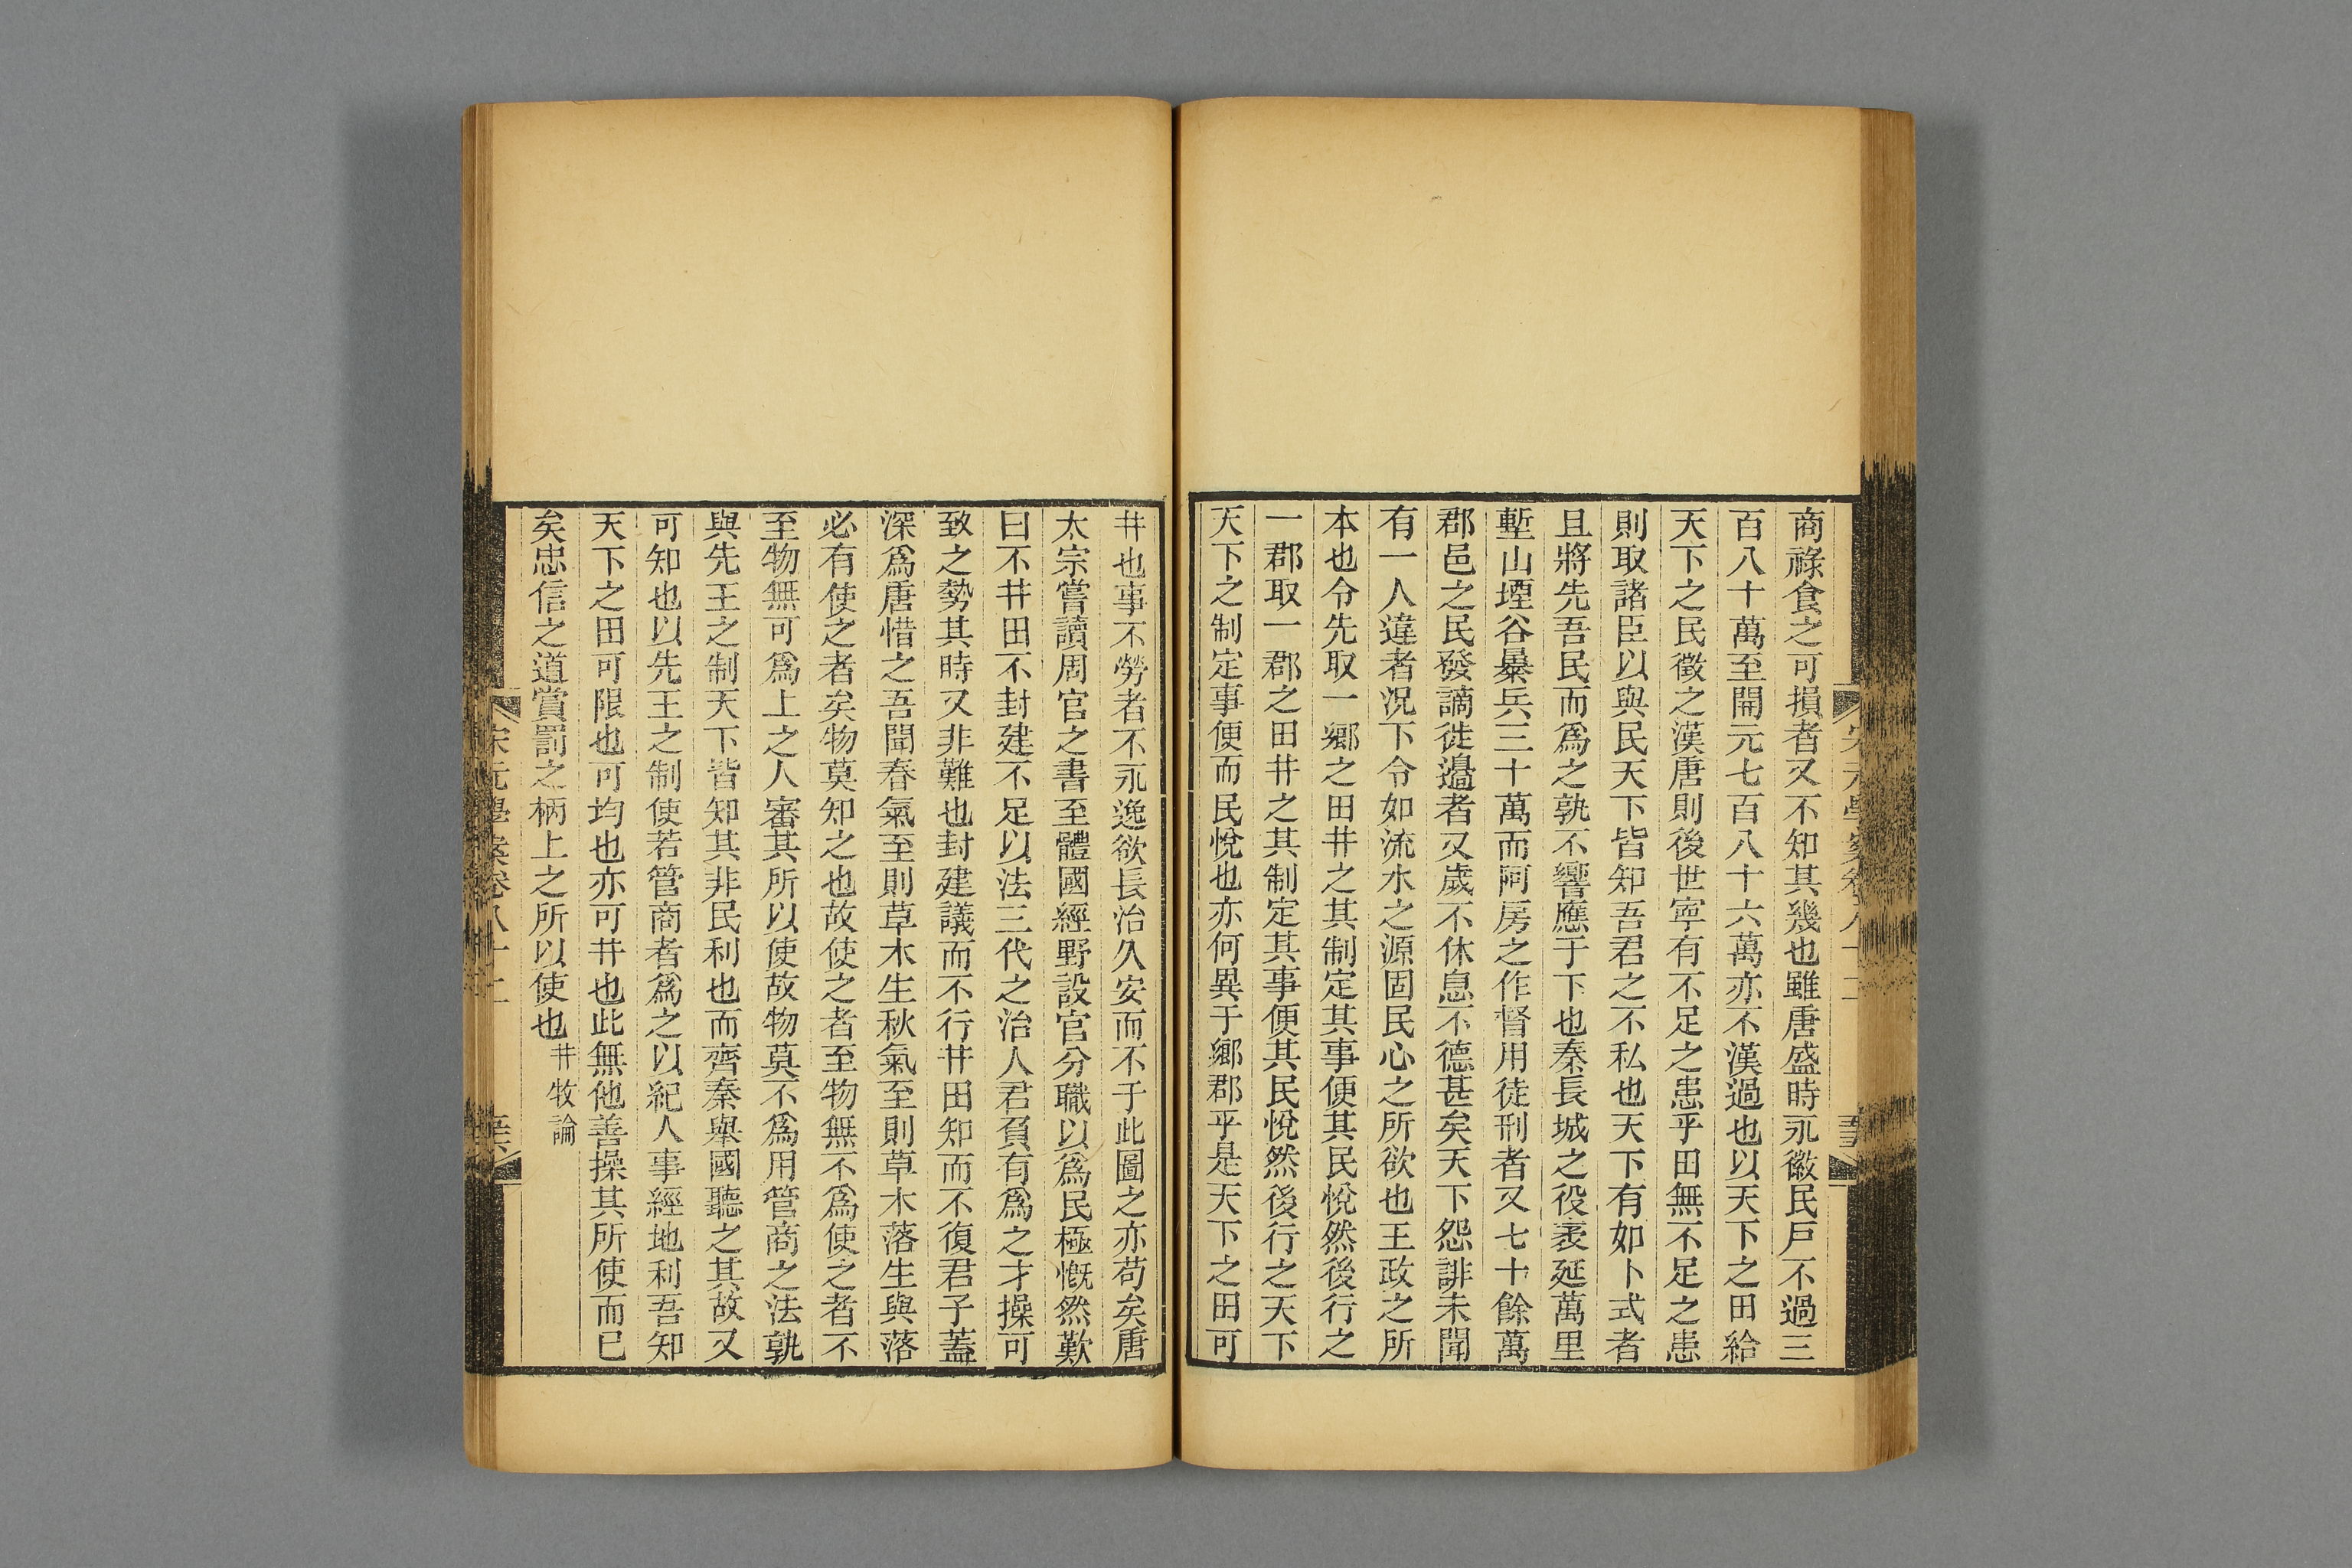 商祿食之可損者又不知其幾也雖唐盛時永徽民戸不過三
百八十萬至開元七百八十六萬亦不漢過也以天下之田給
天下之民徵之漢唐則後世寧有不足之患乎田無不足之患
則取諸臣以與民天下皆知吾君之不私也天下有如卜式者
且將先吾民而爲之孰不響應于下也秦長城之役袤延萬里
塹山堙谷暴兵三十萬而阿房之作督用徒刑者又七十餘萬
郡邑之民發謫徙邊者又歲不休息不德甚矣天下怨誹未聞
有一人違者況下令如流水之源固民心之所欲也王政之所
本也令先取一鄉之田井之其制定其事便其民悅然後行之
一郡取一郡之田井之其制定其事便其民悅然後行之天下
天下之制定事便而民悅也亦何異于鄉郡乎是天下之田可
井也事不勞者不永逸欲長治久安而不于此圖之亦苟矣唐
太宗嘗讀周官之書至體國經野設官分職以爲民極慨然歎
曰不井田不封建不足以法三代之治人君負有爲之才操可
致之勢其時又非難也封建議而不行井田知而不復君子蓋
深爲唐惜之吾聞春氣至則草木生秋氣至則草木落生與落
必有使之者矣物莫知之也故使之者至物無不爲使之者不
至物無可爲上之人審其所以使故物莫不爲用管商之法孰
與先王之制天下皆知其非民利也而齊秦舉國聽之其故又
可知也以先王之制使若管商者爲之以紀人事經地利吾知
天下之田可限也可均也亦可井也此無他善操其所使而已
矣忠信之道賞罰之柄上之所以使也井牧論
宋元學案卷八十二